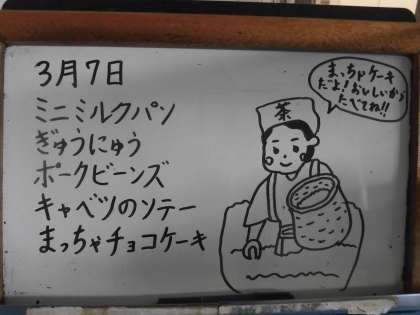 3月7日
ミニミルクパン
ぎゅうにゅう
ポークビーンズ
キャベツのソテー
まっちゃチョコケーキ
まっちゃケーキ
だよ!おいしいから
たべてね!!
茶